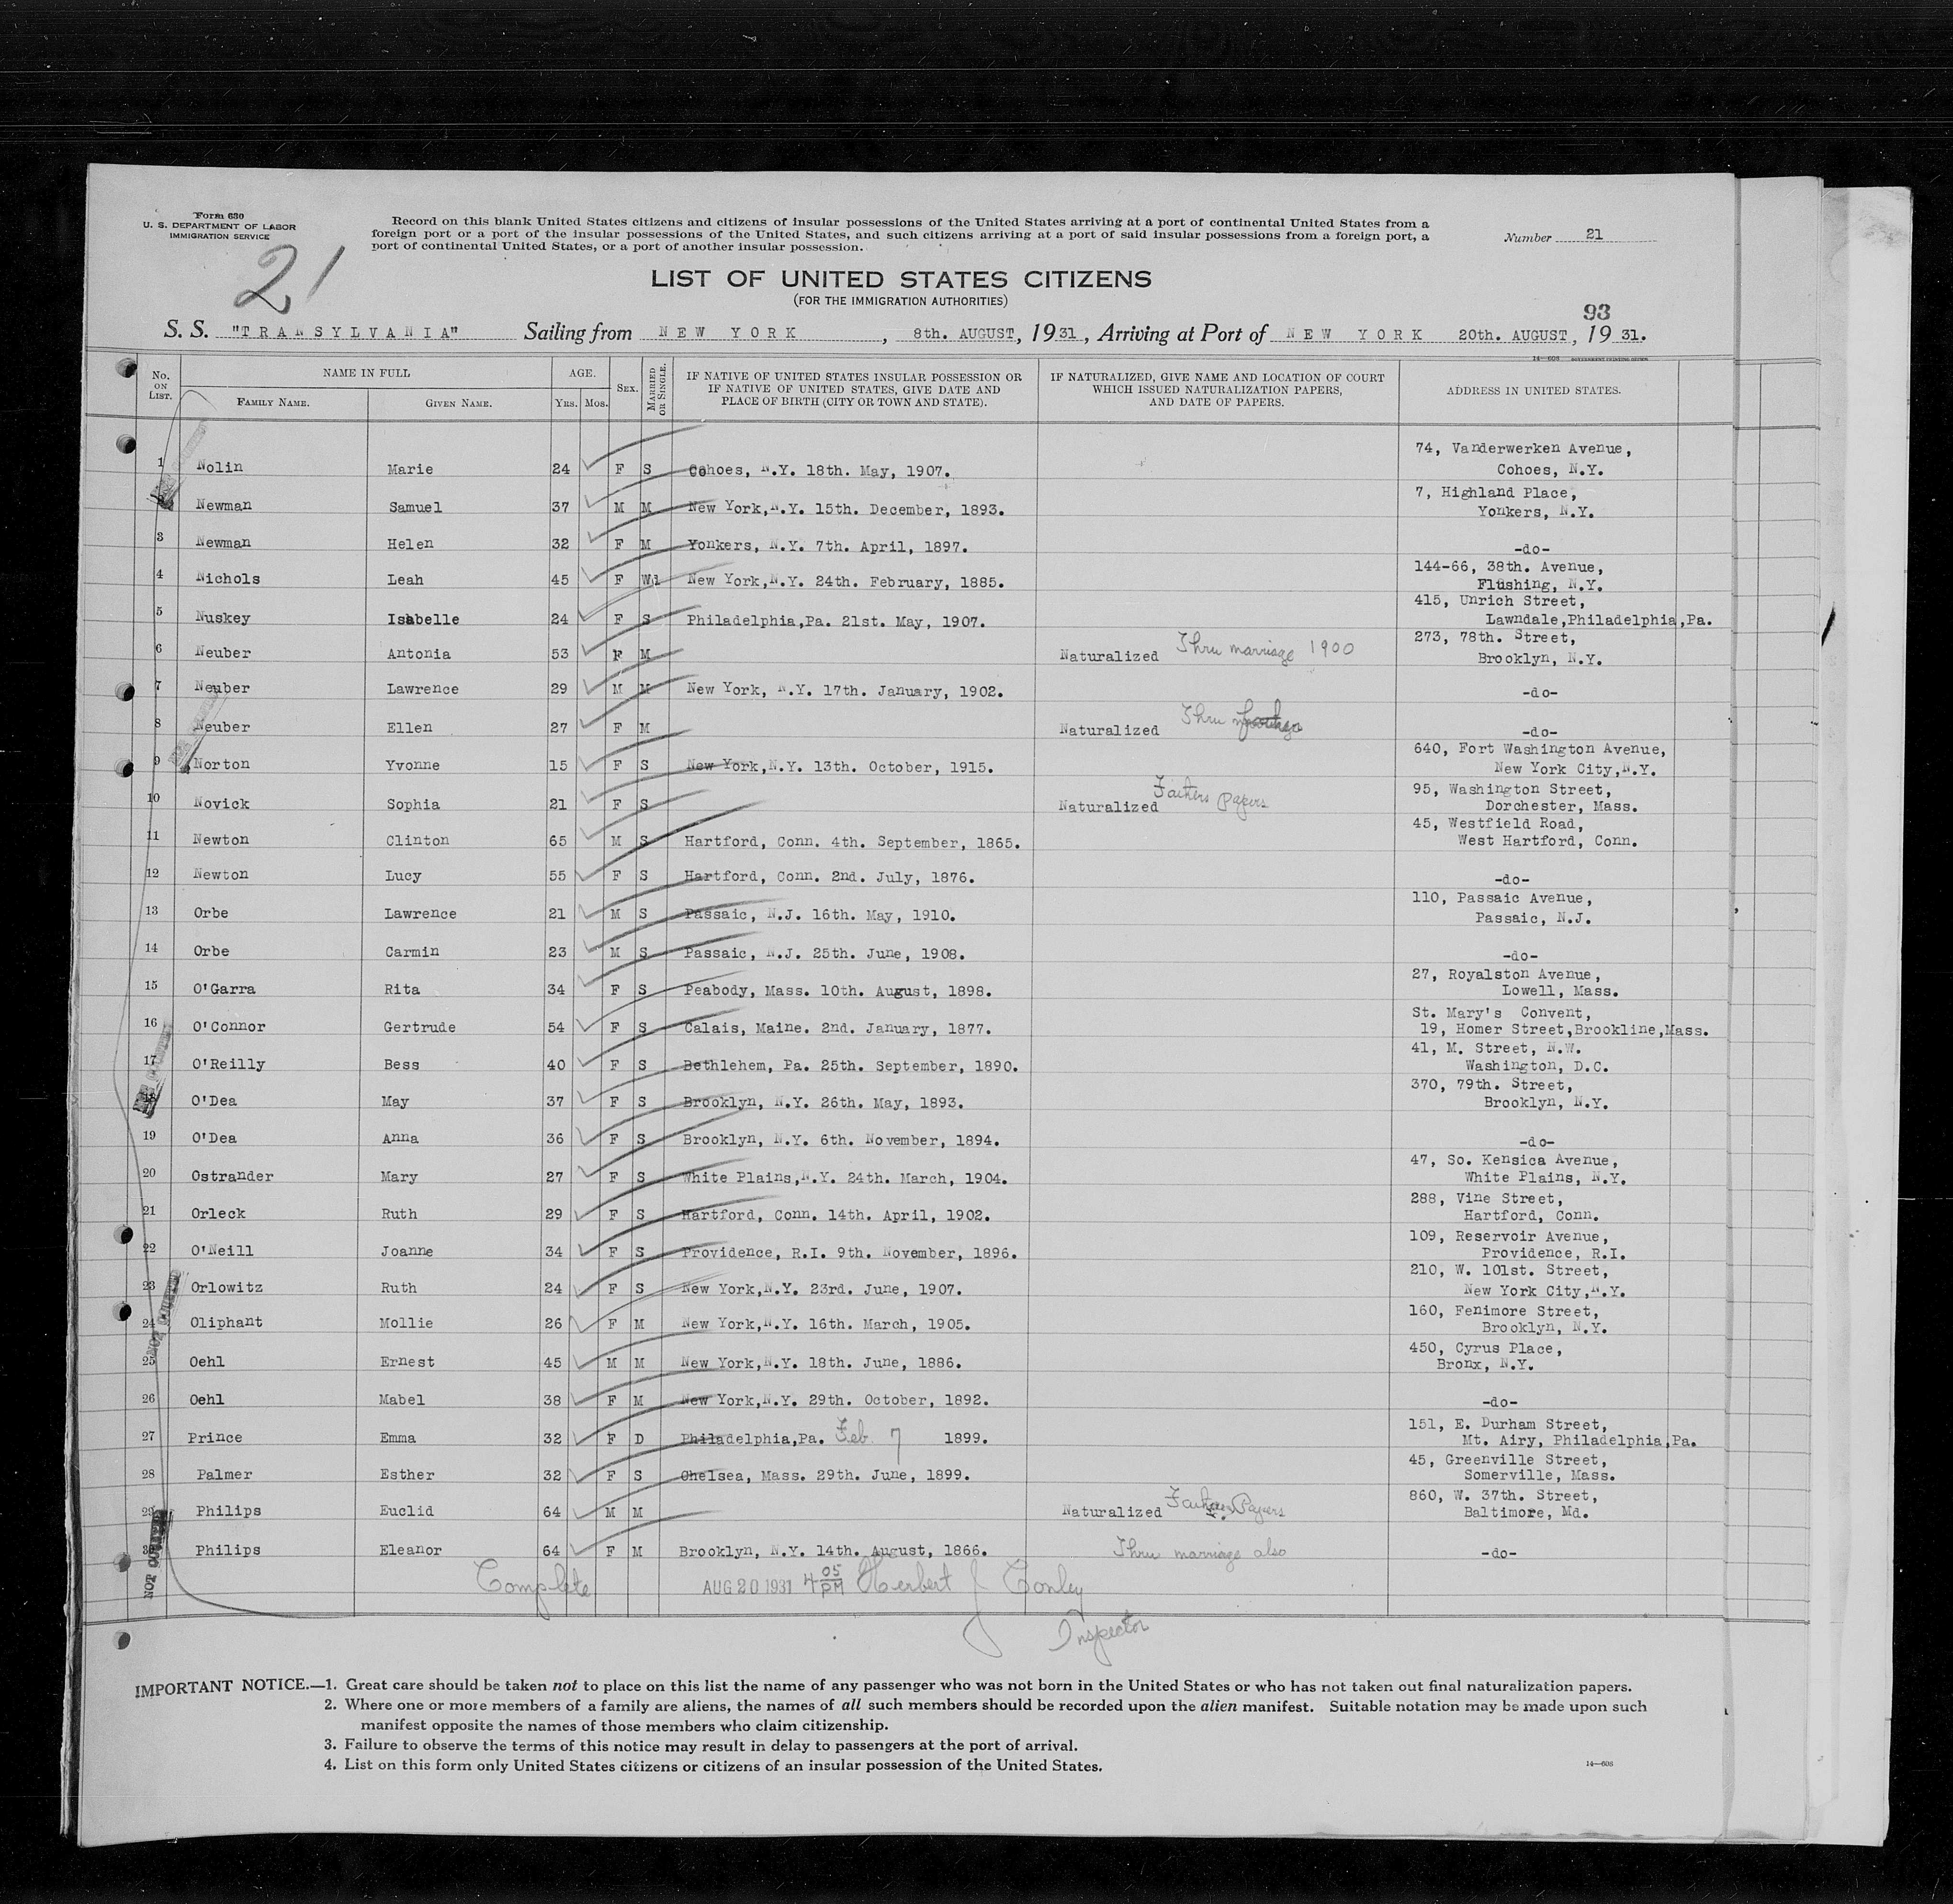 Form 630
U. S. DEPARTMENT OF LABOR
IMMIGRATION SERVICE
21
Record on this blank United States citizens and citizens of insular possessions of the United States arriving at a port of continental United States from a
foreign port or a port of the insular possessions of the United States, and such citizens arriving at a port of said insular possessions from a foreign port, a
port of continental United States, or a port of another insular possession.
Number 21
LIST OF UNITED STATES CITIZENS
(FOR THE IMMIGRATION AUTHORITIES)
93
S. S. "TRANSYLVANIA" Sailing from NEW YORK, 8th. AUGUST, 1931, Arriving at Port of NEW YORK 20th. AUGUST, 1931.
14—608 GOVERNMENT PRINTING OFFICE
No. ON LIST. NAME IN FULL FAMILY NAME. GIVEN NAME. AGE. YRS. MOS. SEX. MARRIED OR SINGLE. IF NATIVE OF UNITED STATES INSULAR POSSESSION OR IF NATIVE OF UNITED STATES, GIVE DATE AND PLACE OF BIRTH (CITY OR TOWN AND STATE). IF NATURALIZED, GIVE NAME AND LOCATION OF COURT WHICH ISSUED NATURALIZATION PAPERS, AND DATE OF PAPERS. ADDRESS IN UNITED STATES.
1 Nolin Marie 24 F S Cohoes, N.Y. 18th. May, 1907. 74, Vanderwerken Avenue, Cohoes, N.Y.
2 Newman Samuel 37 M M New York,N.Y. 15th. December, 1893. 7, Highland Place, Yonkers, N.Y.
3 Newman Helen 32 F M Yonkers, N.Y. 7th. April, 1897. -do-
4 Nichols Leah 45 F Wd New York,N.Y. 24th. February, 1885. 144-66, 38th. Avenue, Flushing, N.Y.
5 Nuskey Isabelle 24 F S Philadelphia,Pa. 21st. May, 1907. 415, Unrich Street, Lawndale,Philadelphia,Pa.
6 Neuber Antonia 53 F M Naturalized Thru marriage 1900 273, 78th. Street, Brooklyn, N.Y.
7 Neuber Lawrence 29 M M New York, N.Y. 17th. January, 1902. -do-
8 Neuber Ellen 27 F M Naturalized Thru -do-
9 Norton Yvonne 15 F S New York,N.Y. 13th. October, 1915. 640, Fort Washington Avenue, New York City,N.Y.
10 Novick Sophia 21 F S Naturalized Fathers Papers 95, Washington Street, Dorchester, Mass.
11 Newton Clinton 65 M S Hartford, Conn. 4th. September, 1865. 45, Westfield Road, West Hartford, Conn.
12 Newton Lucy 55 F S Hartford, Conn. 2nd. July, 1876. -do-
13 Orbe Lawrence 21 M S Passaic, N.J. 16th. May, 1910. 110, Passaic Avenue, Passaic, N.J.
14 Orbe Carmin 23 M S Passaic, N.J. 25th. June, 1908. -do-
15 O'Garra Rita 34 F S Peabody, Mass. 10th. August, 1898. 27, Royalston Avenue, Lowell, Mass.
16 O'Connor Gertrude 54 F S Calais, Maine. 2nd. January, 1877. St. Mary's Convent, 19, Homer Street,Brookline,Mass.
17 O'Reilly Bess 40 F S Bethlehem, Pa. 25th. September, 1890. 41, M. Street, N.W. Washington, D.C.
18 O'Dea May 37 F S Brooklyn, N.Y. 26th. May, 1893. 370, 79th. Street, Brooklyn, N.Y.
19 O'Dea Anna 36 F S Brooklyn, N.Y. 6th. November, 1894. -do-
20 Ostrander Mary 27 F S White Plains,N.Y. 24th. March, 1904. 47, So. Kensica Avenue, White Plains, N.Y.
21 Orleck Ruth 29 F S Hartford, Conn. 14th. April, 1902. 288, Vine Street, Hartford, Conn.
22 O'Neill Joanne 34 F S Providence, R.I. 9th. November, 1896. 109, Reservoir Avenue, Providence, R.I.
23 Orlowitz Ruth 24 F S New York,N.Y. 23rd. June, 1907. 210, W. 101st. Street, New York City,N.Y.
24 Oliphant Mollie 26 F M New York,N.Y. 16th. March, 1905. 160, Fenimore Street, Brooklyn, N.Y.
25 Oehl Ernest 45 M M New York,N.Y. 18th. June, 1886. 450, Cyrus Place, Bronx, N.Y.
26 Oehl Mabel 38 F M New York,N.Y. 29th. October, 1892. -do-
27 Prince Emma 32 F D Philadelphia,Pa. Feb. 7 1899. 151, E. Durham Street, Mt. Airy, Philadelphia,Pa.
28 Palmer Esther 32 F S Chelsea, Mass. 29th. June, 1899. 45, Greenville Street, Somerville, Mass.
29 Philips Euclid 64 M M Naturalized Fathers Papers 860, W. 37th. Street, Baltimore, Md.
30 Philips Eleanor 64 F M Brooklyn, N.Y. 14th. August, 1866. Thru marriage also -do-
NOT COUNTED
Complete AUG 20 1931 4 05 PM Herbert J Conley
Inspector
IMPORTANT NOTICE.—1. Great care should be taken not to place on this list the name of any passenger who was not born in the United States or who has not taken out final naturalization papers.
2. Where one or more members of a family are aliens, the names of all such members should be recorded upon the alien manifest. Suitable notation may be made upon such
manifest opposite the names of those members who claim citizenship.
3. Failure to observe the terms of this notice may result in delay to passengers at the port of arrival.
4. List on this form only United States citizens or citizens of an insular possession of the United States.
14—608